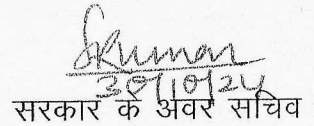 SKumar
30/10/24
सरकार के अवर सचिव